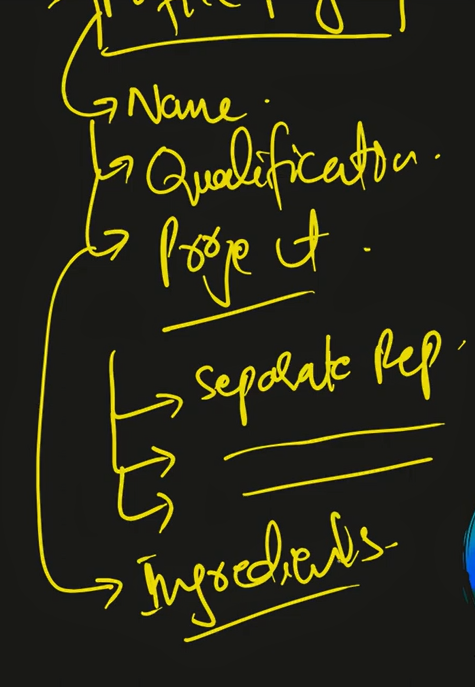 Name.
Qualification.
Project.
Separate Rep
Ingredients